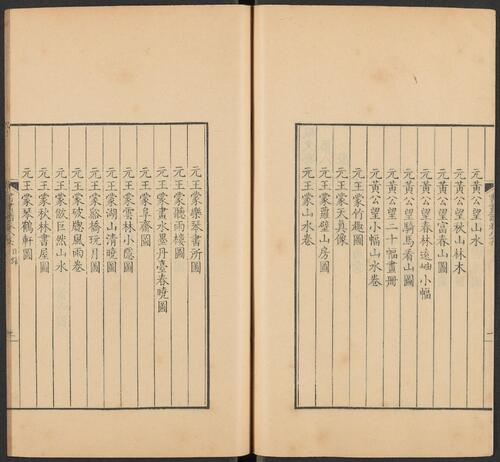 元黃公望山水
元黃公望秋山林木
元黃公望富春山圖
元黃公望春林遠岫小幅
元黃公望騎馬看山圖
元黃公望二十幅畫冊
元黃公望小幅山水卷
元王蒙竹趣圖
元王蒙天真像
元王蒙蕭壁山房圖
元王蒙山水卷
元王蒙樂琴書所圖
元王蒙聽雨樓圖
元王蒙畫水墨丹臺春曉圖
元王蒙阜齋圖
元王蒙雲林小隱圖
元王蒙湖山清曉圖
元王蒙谿橋玩月圖
元王蒙破牕風雨卷
元王蒙倣巨然山水
元王蒙秋林書屋圖
元王蒙琴鶴軒圖